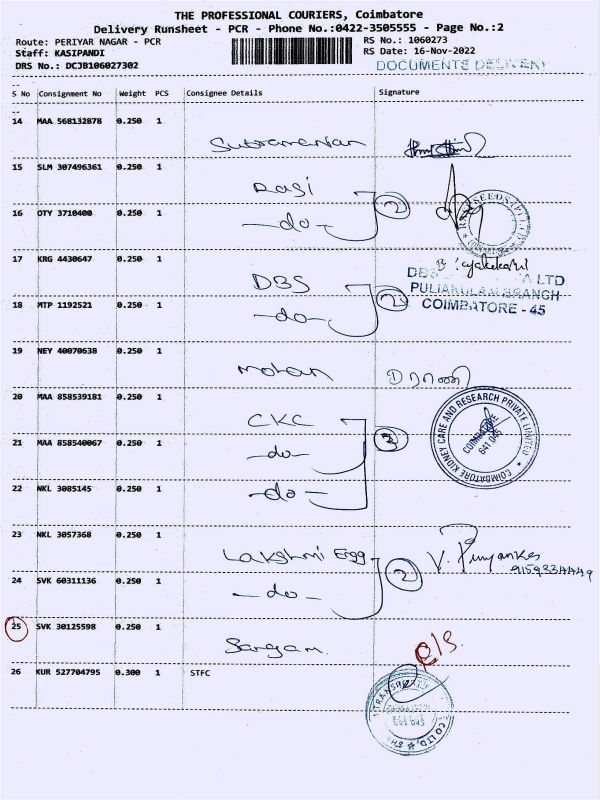 THE PROFESSIONAL COURIERS, Coimbatore
Delivery Runsheet - PCR - Phone No.:0422-3505555 - Page No.:2
Route: PERIYAR NAGAR - PCR RS No.: 1060273
Staff: KASIPANDI RS Date: 16-Nov-2022
DRS No.: DCJB106027302 DOCUMENTS DELIVERY
S No Consignment No Weight PCS Consignee Details Signature
14 MAA 568132878 0.250 1
Subramanian
15 SLM 307496361 0.250 1
Rasi
16 OTY 3710400 0.250 1
-do- 2
SEEDS (P) LTD
17 KRG 4430647 0.250 1
DBS
A LTD
PULIAKULAM BRANCH
18 MTP 1192521 0.250 1 COIMBATORE - 45
-do- 2
19 NEY 40070638 0.250 1
Mohan
20 MAA 858539181 0.250 1
CKC
COIMBATORE KIDNEY CARE AND RESEARCH PRIVATE LIMITED
COIMBATORE
641 045
21 MAA 858540067 0.250 1
-do- 3
22 NKL 3085145 0.250 1
-do-
23 NKL 3057368 0.250 1
Lakshmi Engg V. Priyanka
9159334449
24 SVK 60311136 0.250 1
-do- 2
25 SVK 30125598 0.250 1
Sangam
26 KUR 527704795 0.300 1 STFC
TRANSPORT
CO LTD